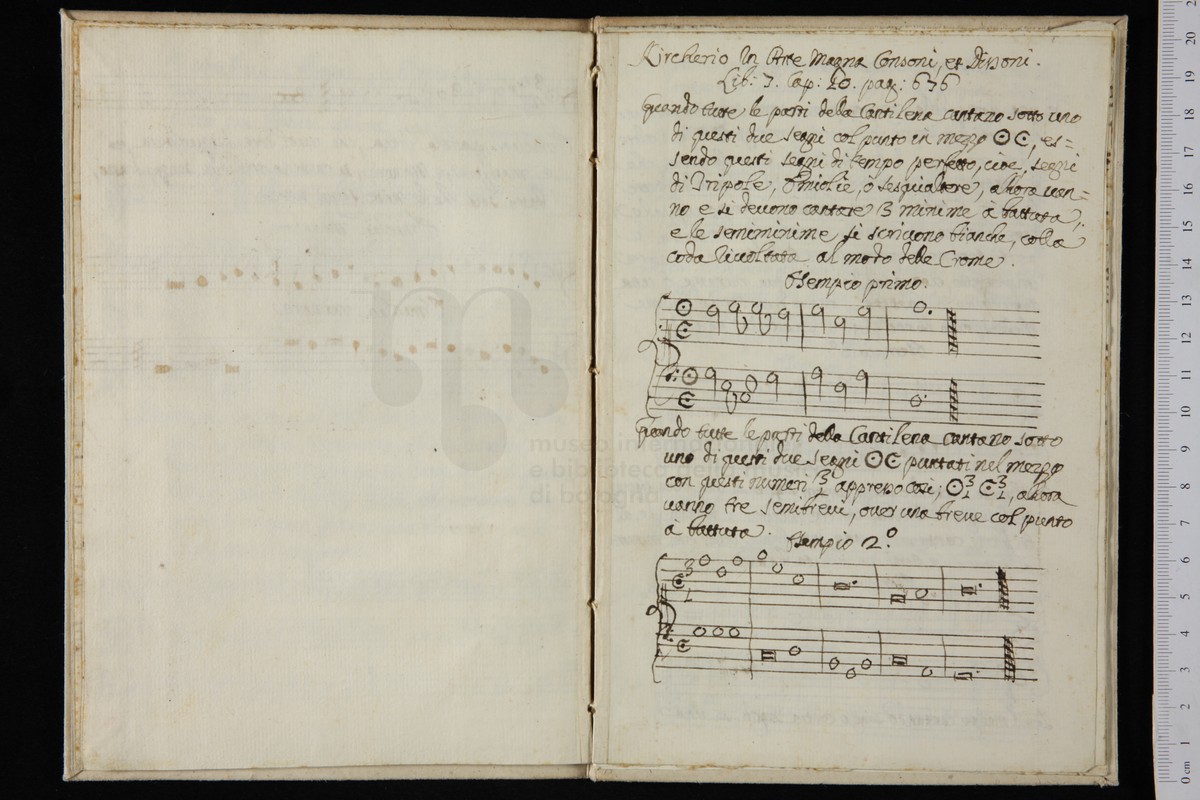 Kircherio In Arte Magna Consoni, et Dissoni.
Lib: 7. Cap: 10. pag: 676
Quando tutte le parti della Cantilena cantano sotto uno
di questi due segni col punto in mezzo ʘ, es=
sendo questi segni di tempo perfetto, cioè, segni
di Tripole, Emiolie, ò sesquialtere, allora van=
no e si devono cantare 3 minime à battuta,
e le semiminime si scrivono bianche, colla
coda rivoltata al modo delle Crome.
Esempio primo.
museo internazionale
e biblioteca della musica
di bologna
Quando tutte le parti della Cantilena cantano sotto
uno di questi due segni ʘ puntati nel mezzo
con questi numeri 3/1 appresso così; ʘ3/1 3/1, allora
vanno tre semibrevi, over una breve col punto
à battuta.
Esempio 2.º
3
1
0 cm 1 2 3 4 5 6 7 8 9 10 11 12 13 14 15 16 17 18 19 20 2